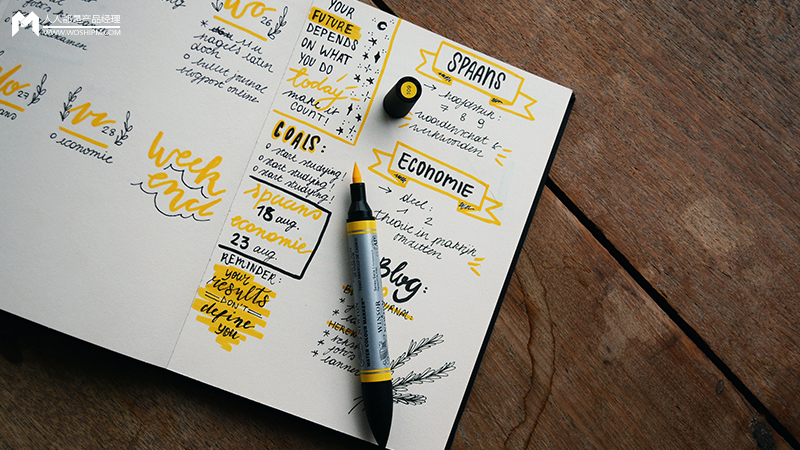 人人都是产品经理
WWW.WOSHIPM.COM
wo 26
nagels laten
doen
o bullet journal
blogpost online
27
28
o economie
week
end
YOUR
FUTURE
DEPENDS
ON WHAT
YOU DO
today
make it
COUNT!
GOALS:
o start studying!
o start studying!
o start studying!
Spaans
18 aug.
economie
23 aug.
REMINDER:
your
results
DON'T
define
you
SPAANS
→ hoofdstuk:
7 8 9
woordenschat &
werkwoorden
ECONOMIE
→ deel:
1 2
theorie in praktijk
omzetten
Blog:
WATER COLOUR MARKER
WINSOR